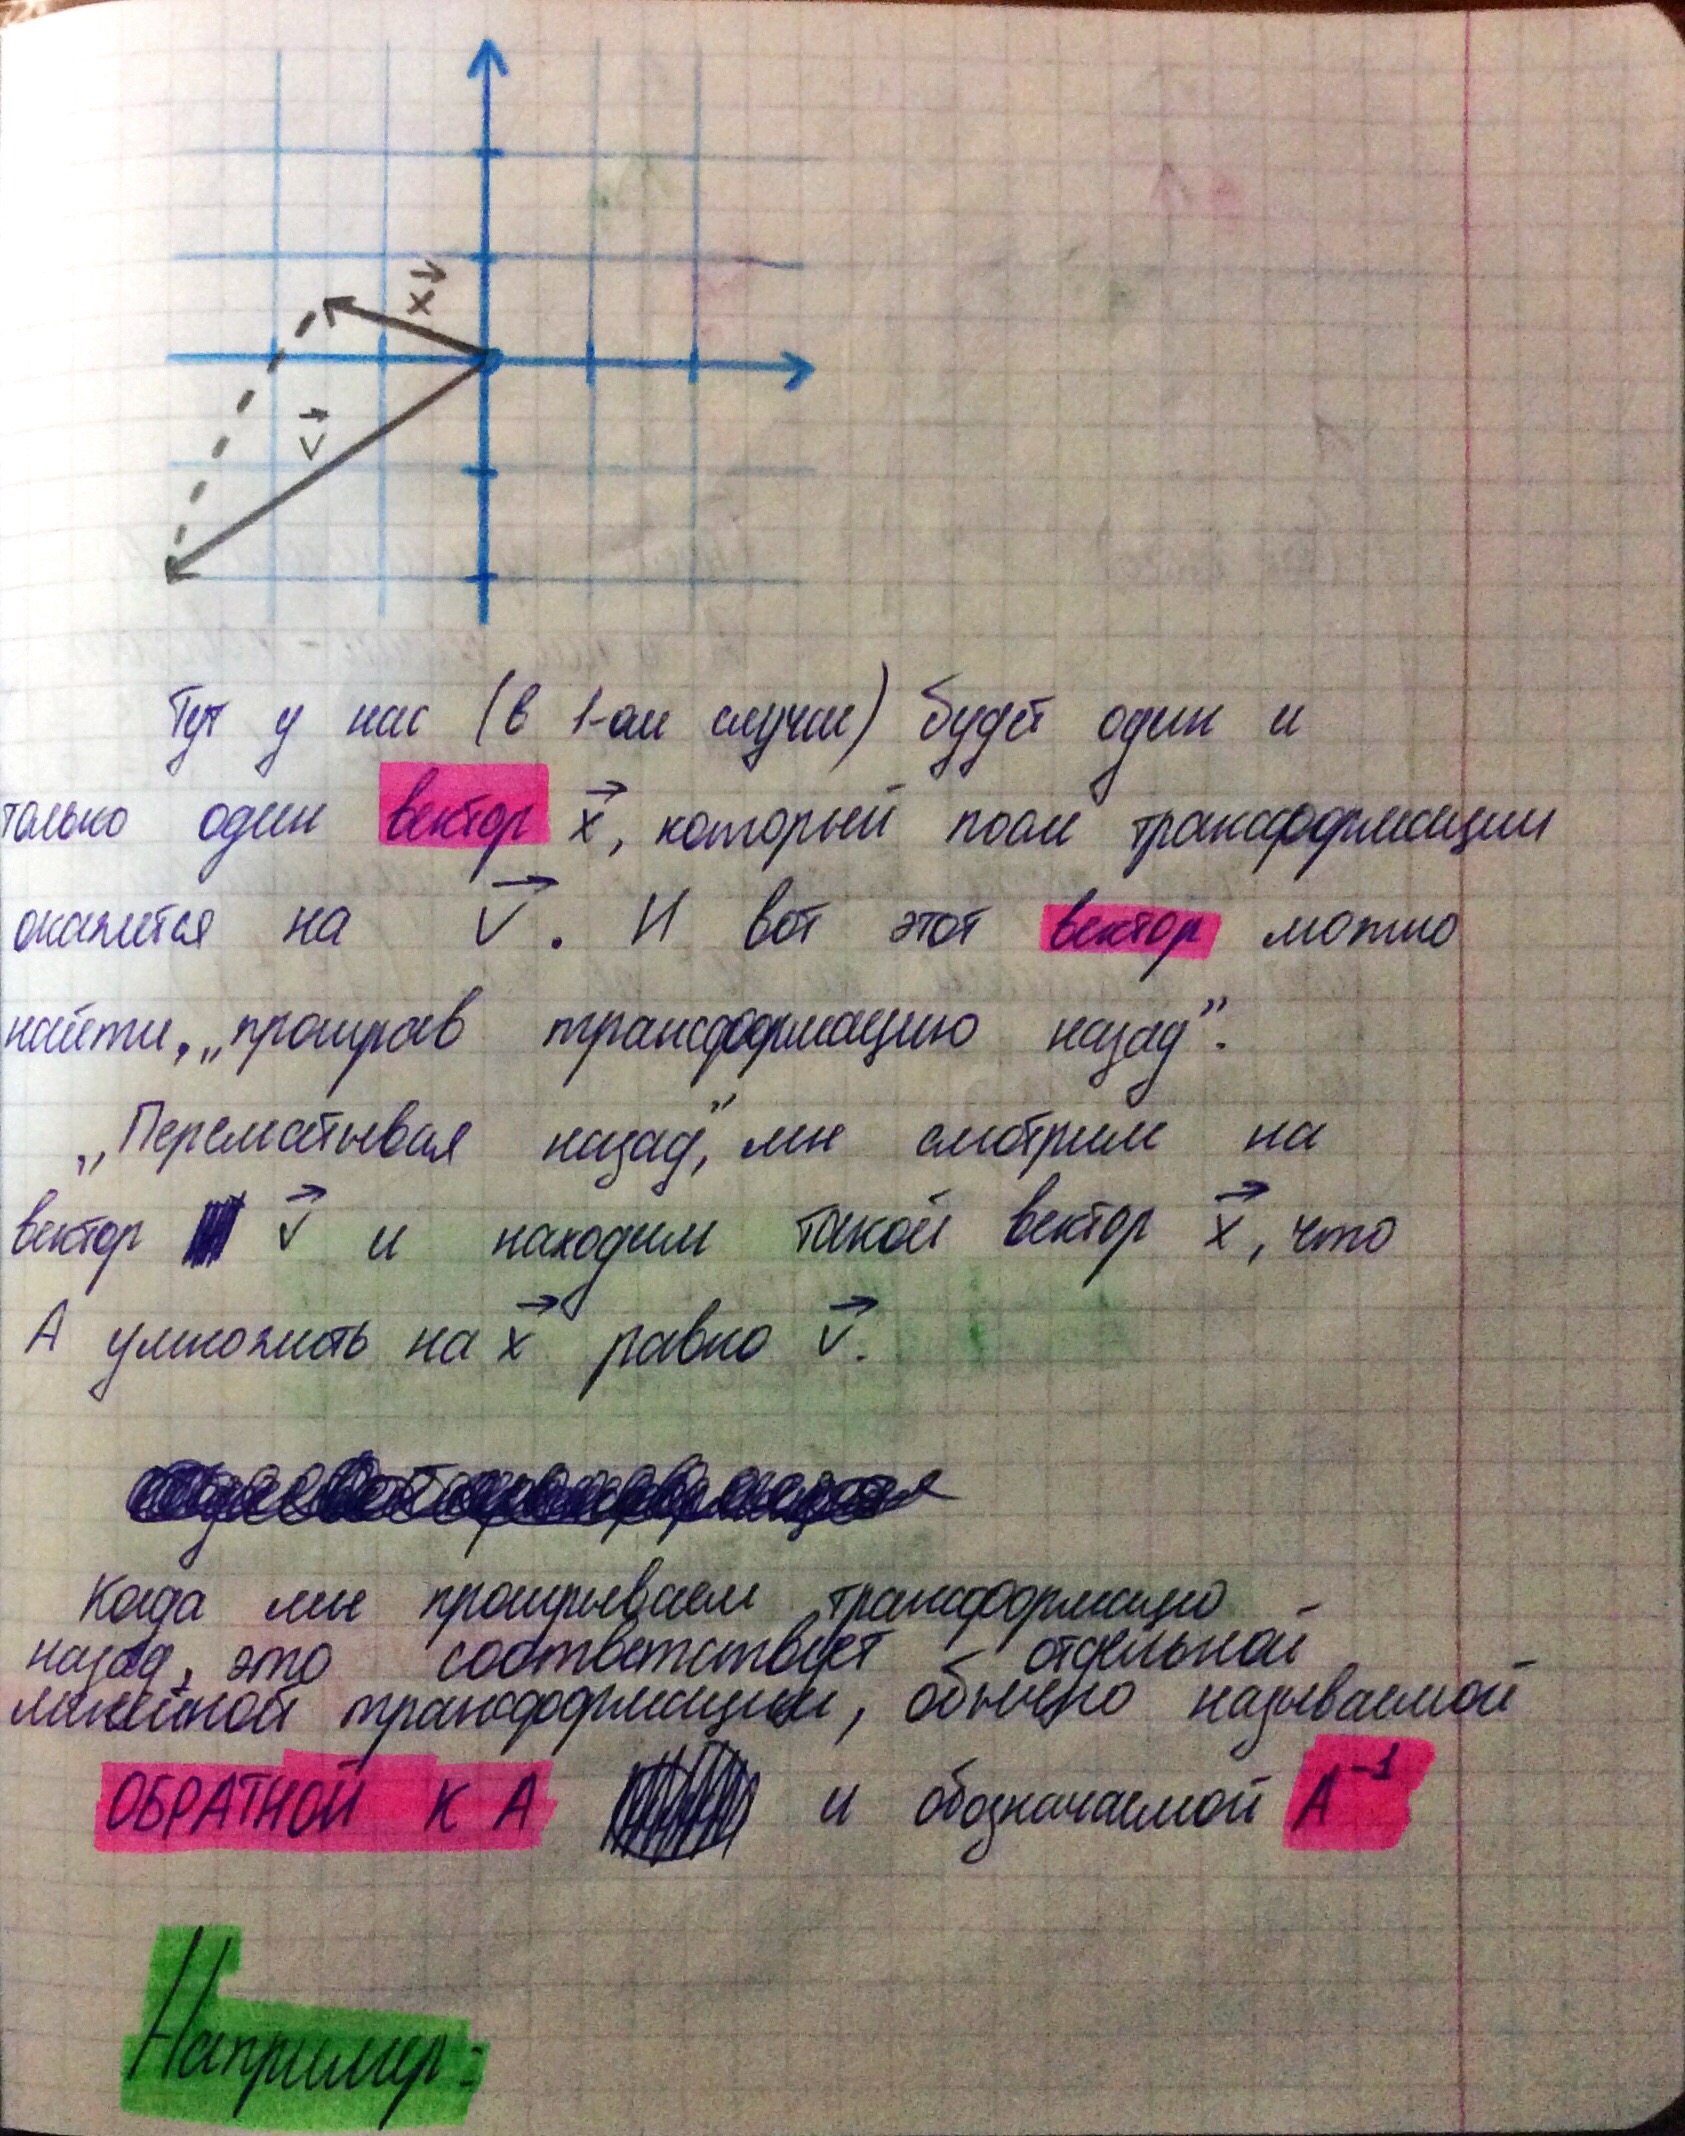 x⃗
v⃗
Тут у нас (в 1-ом случае) будет один и
только один вектор x⃗, который после трансформации
окажется на v⃗. И вот этот вектор можно
найти, „проиграв трансформацию назад”.
„Перематывая назад”, мы смотрим на
вектор v⃗ и находим такой вектор x⃗, что
А умножить на x⃗ равно v⃗.
Когда мы проигрываем трансформацию
назад, это соответствует отдельной
линейной трансформации, обычно называемой
ОБРАТНОЙ К А и обозначаемой A⁻¹
Например: